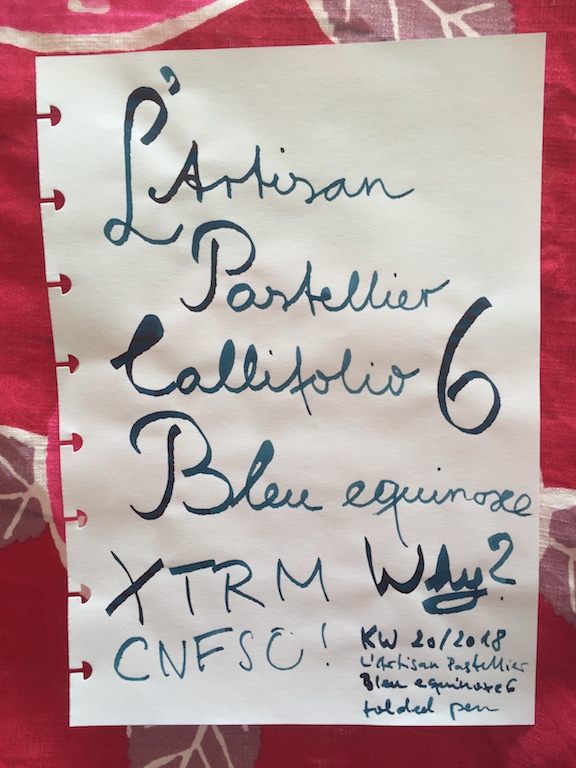 L'Artisan
Pastellier
Callifolio 6
Bleu equinoxe
XTRM Why?
CNFSC!
KW 20/2018
L'Artisan Pastellier
Bleu equinoxe 6
folded pen